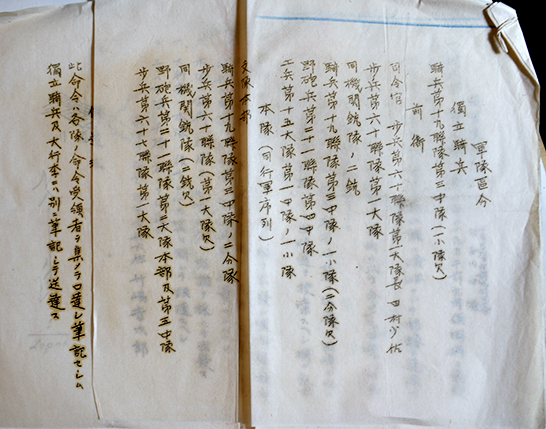 軍隊区分
獨立騎兵
騎兵第十九聯隊第三中隊(一小隊欠)
前衛
司令官 步兵第六十聯隊第一大隊長 田村少佐
步兵第六十聯隊第一大隊
同機関銃隊ノ二銃
騎兵第十九聯隊第三中隊ノ一小隊(二分隊欠)
野砲兵第二十一聯隊第四中隊
工兵第十五大隊第一中隊ノ一小隊
本隊(同行軍序列)
支隊本部
騎兵第十九聯隊第三中隊ノ二分隊
步兵第六十聯隊(第一大隊欠)
同機関銃隊(二銃欠)
野砲兵第二十一聯隊第二大隊本部及第五中隊
步兵第六十七聯隊第一大隊
此命令ハ各隊ノ命令受領者ヲ集メテ口達シ筆記セシム
獨立騎兵及大行李ニハ別ニ筆記シテ送達ス